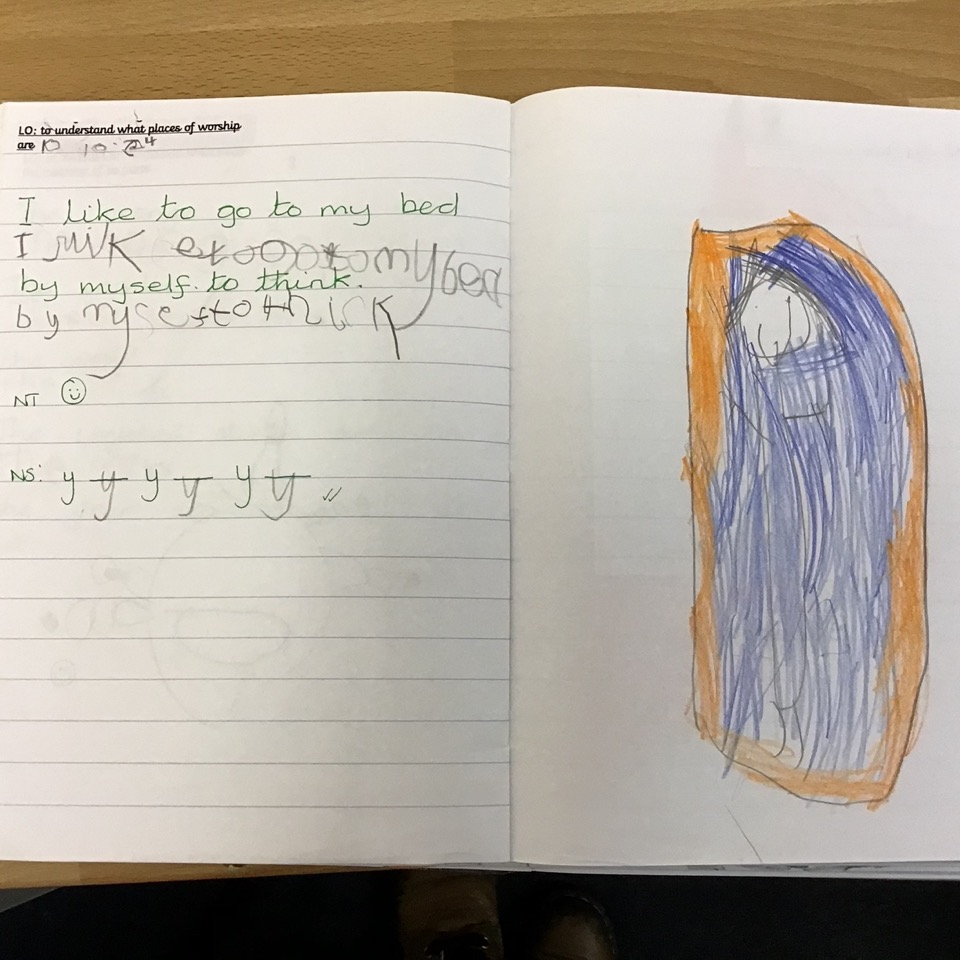 LO: to understand what places of worship
are 10 10.24
I like to go to my bed
I ruik etoootomybed
by myself. to think.
by mysestothick
NT
NS: y y y y y y